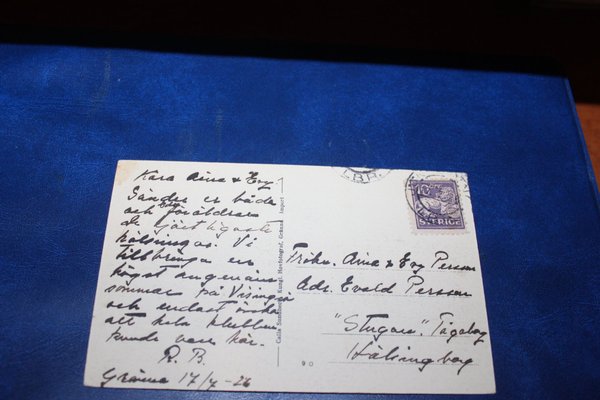 Kära Aina & Evy.
Sänder er båda
och Edra föräldrar
de hjärtligaste
hälsningar. Vi
tillbringa en
högst angenäm
sommar på Visingsö
och endast önska
att hela klubben
kunde vara här.
R. B.
Gränna 17/7 - 26
Grenna Import
90
LBR.
10
SVERIGE
Frökn. Aina & Evy Persson
Adr. Evald Persson
"Stugan". Tågaborg
Hälsingborg